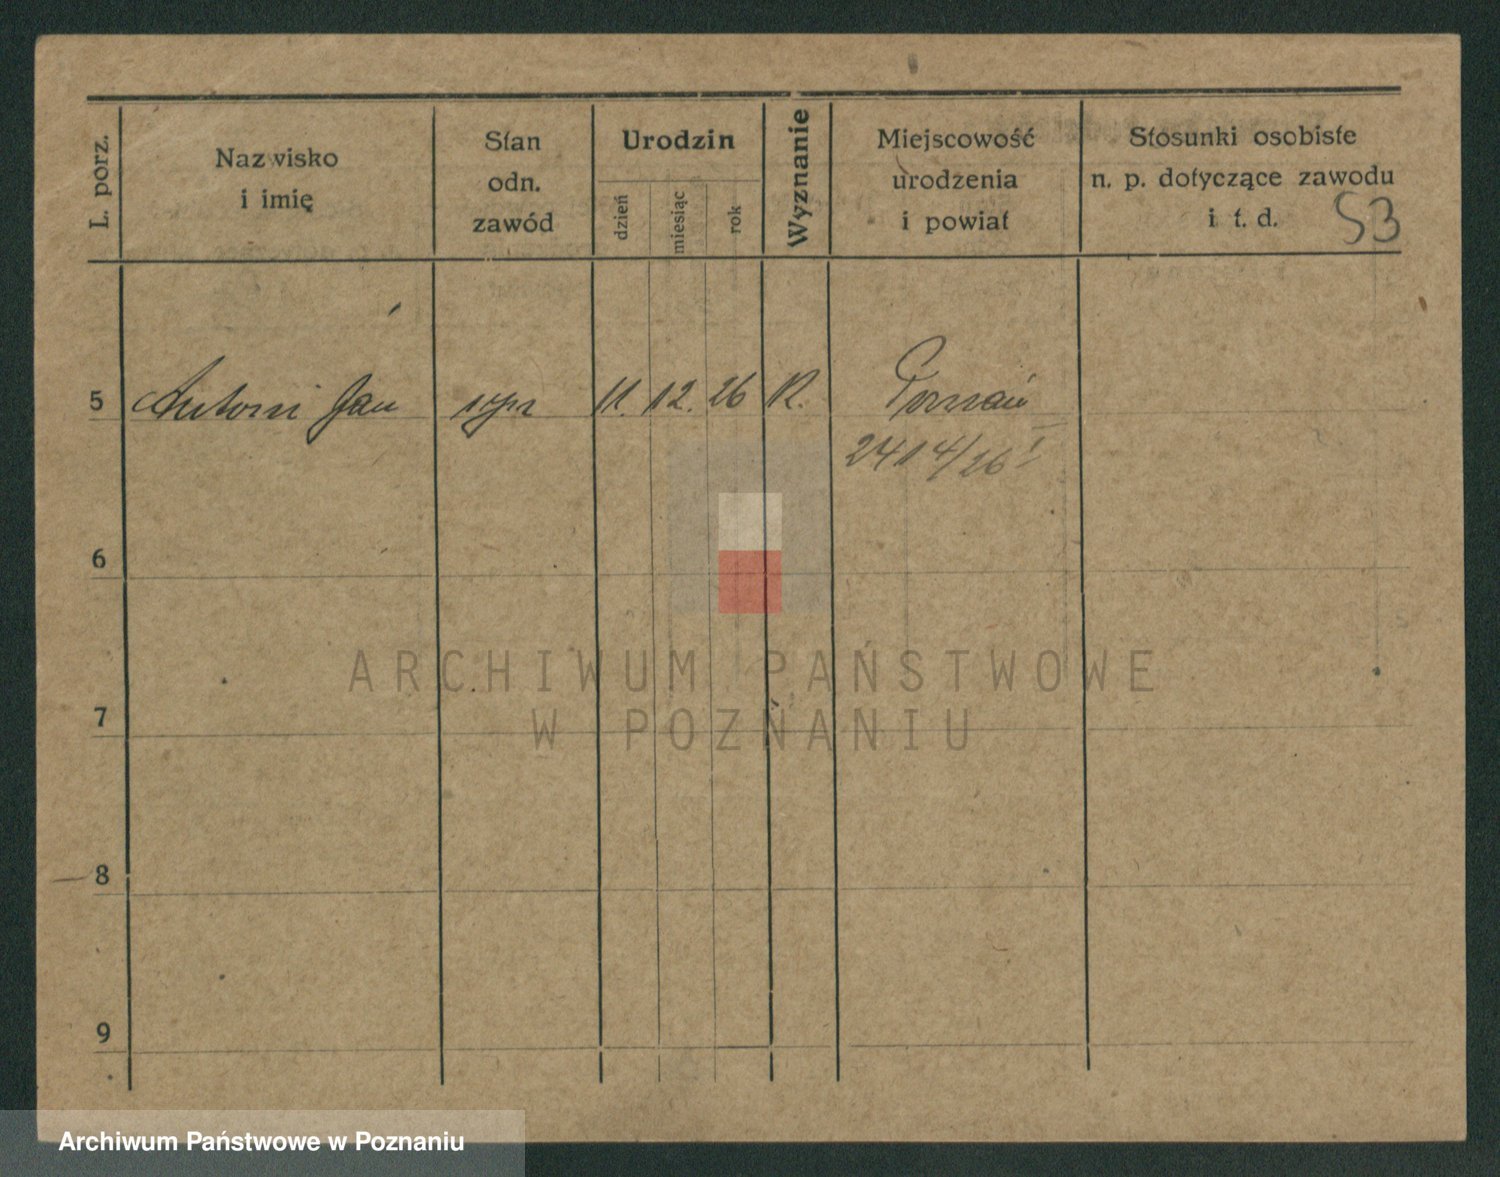 L. porz.
Nazwisko
i imię
Stan
odn.
zawód
Urodzin
dzień
miesiąc
rok
Wyznanie
Miejscowość
urodzenia
i powiat
Stosunki osobiste
n. p. dotyczące zawodu
i t. d.
53
5 Antoni Jan 11. 12. 26 R. Poznań
2414/26 I
6
7
8
9
ARCHIWUM PAŃSTWOWE
W POZNANIU
Archiwum Państwowe w Poznaniu